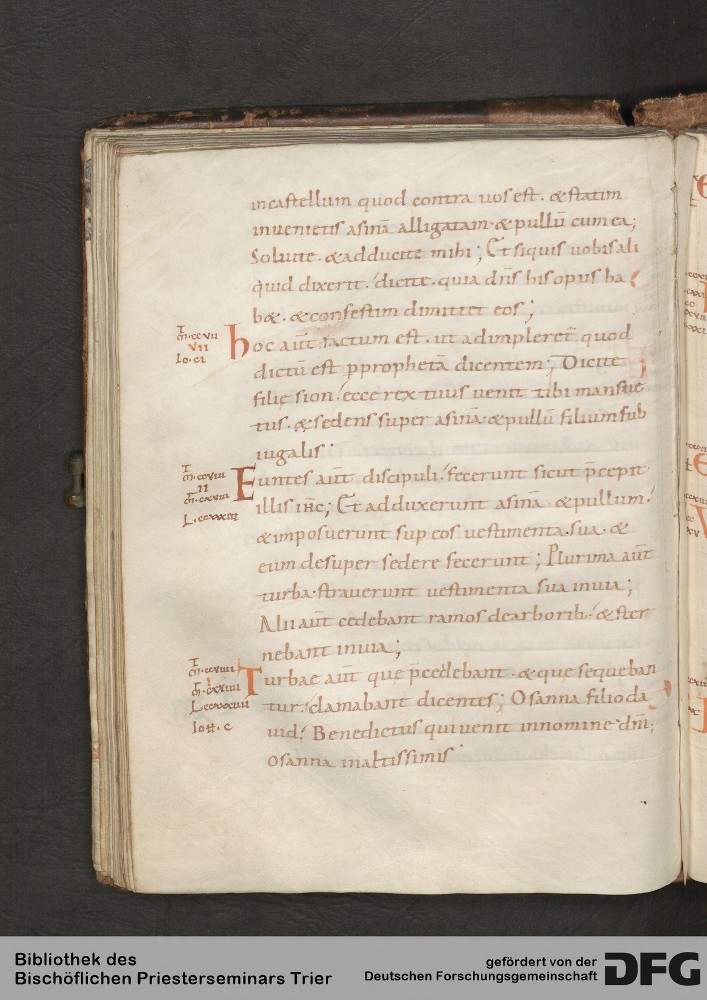 incastellum quod contra uos est. & statim
inuenietis asinā alligatam. & pullū cum ea;
Soluite. & adducite mihi; Et siquis uobis ali
quid dixerit. dicite. quia dn̄s his opus ha
b&. & confestim dimittet eos;
T
m̄.ccvii
VII
Io.ci
hoc aūt factum est. ut adimpleret̄ quod
dictū est ꝑ prophetā dicentem; Dicite
filię sion. ecce rex tuus uenit tibi mansue
tus. & sedens super asinā & pullū filium sub
iugalis.
T
m̄.ccviii
II
m̄.cxviii
L.ccxxxiii
Euntes aūt discipuli. fecerunt sicut p̄cepit
illis ih̄c; Et adduxerunt asinā & pullum.
& imposuerunt sup eos uestimenta sua. &
eum desuper sedere fecerunt; Plurima aūt
turba. strauerunt uestimenta sua inuia;
Alii aūt cedebant ramos dearborib. & ster
nebant inuia;
T
m̄.ccviiii
I
m̄.cxxiiii
Ioh̄.c
Turbae aūt que p̄cedebant. & que sequeban
tur. clamabant dicentes; Osanna filio da
uid. Benedictus qui uenit innomine dn̄i;
Osanna inaltissimis.
Bibliothek des
Bischöflichen Priesterseminars Trier
gefördert von der
Deutschen Forschungsgemeinschaft
DFG